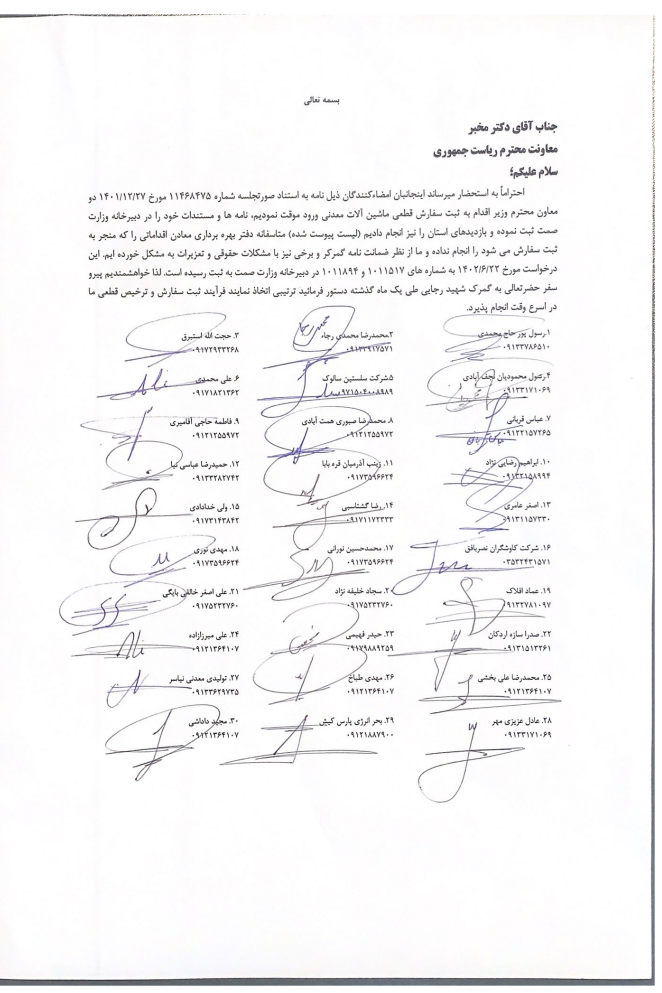 بسمه تعالی
جناب آقای دکتر مخبر
معاونت محترم ریاست جمهوری
سلام علیکم؛
احتراماً به استحضار میرساند اینجانبان امضاءکنندگان ذیل نامه به استناد صورتجلسه شماره ۱۱۴۶۸۴۷۵ مورخ ۱۴۰۱/۱۲/۲۷ دو
معاون محترم وزیر اقدام به ثبت سفارش قطعی ماشین آلات معدنی ورود موقت نمودیم، نامه ها و مستندات خود را در دبیرخانه وزارت
صمت ثبت نموده و بازدیدهای استان را نیز انجام دادیم (لیست پیوست شده) متاسفانه دفتر بهره برداری معادن اقداماتی را که منجر به
ثبت سفارش می شود را انجام نداده و ما از نظر ضمانت نامه گمرکر و برخی نیز با مشکلات حقوقی و تعزیرات به مشکل خورده ایم. این
درخواست مورخ ۱۴۰۲/۶/۲۲ به شماره های ۱۰۱۱۵۱۷ و ۱۰۱۱۸۹۴ در دبیرخانه وزارت صمت به ثبت رسیده است. لذا خواهشمندیم پیرو
سفر حضرتعالی به گمرک شهید رجایی طی یک ماه گذشته دستور فرمائید ترتیبی اتخاذ نمایند فرآیند ثبت سفارش و ترخیص قطعی ما
در اسرع وقت انجام پذیرد.
۱.رسول پور حاج محمدی ۲.محمدرضا محمدی رجاء ۳. حجت الله استبرق
۰۹۱۳۳۷۸۶۵۱۰ ۰۹۱۳۳۹۱۷۵۷۱ ۰۹۱۷۲۹۳۳۲۶۸
۴.رسول محمودیان نجف آبادی ۵شرکت سلستین سالوک ۶. علی محمدی
۰۹۱۳۳۱۷۱۰۶۹ ۰۹۷۱۵۰۴۰۰۸۹۸۹ ۰۹۱۷۱۸۲۱۳۶۲
۷. عباس قربانی ۸. محمدرضا صبوری همت آبادی ۹. فاطمه حاجی آقامیری
۰۹۱۳۲۱۵۷۲۶۵ ۰۹۱۲۱۲۵۵۹۷۲ ۰۹۱۲۱۲۵۵۹۷۲
۱۰. ابراهیم رضایی نژاد ۱۱. زینب آذرمیان قره بابا ۱۲. حمیدرضا عباسی نیا
۰۹۱۳۲۱۵۸۹۹۴ ۰۹۱۷۳۵۹۶۶۲۴ ۰۹۱۳۳۲۸۲۷۴۲
۱۳. اصغر عامری ۱۴. رضا گشتاسبی ۱۵. ولی خدادادی
۰۹۱۳۱۱۵۷۳۳۰ ۰۹۱۷۱۱۷۲۳۳۳ ۰۹۱۷۳۱۴۳۸۴۲
۱۶. شرکت کاوشگران نصربافق ۱۷. محمدحسین نورانی ۱۸. مهدی نوری
۰۳۵۳۲۴۳۱۵۷۱ ۰۹۱۷۳۵۹۶۶۲۴ ۰۹۱۷۳۵۹۶۶۲۴
۱۹. عماد افلاک ۲۰. سجاد خلیفه نژاد ۲۱. علی اصغر خالقی بایگی
۰۹۱۳۲۷۸۱۰۹۷ ۰۹۱۷۵۲۳۲۷۶۰ ۰۹۱۷۵۲۳۲۷۶۰
۲۲. صدرا سازه اردکان ۲۳. حیدر فهیمی ۲۴. علی میرزازاده
۰۹۱۳۱۵۱۳۲۶۱ ۰۹۱۷۹۸۸۹۲۵۹ ۰۹۱۲۱۳۶۴۱۰۷
۲۵. محمدرضا علی بخشی ۲۶. مهدی طباخ ۲۷. تولیدی معدنی نیاسر
۰۹۱۲۱۳۶۴۱۰۷ ۰۹۱۲۱۳۶۴۱۰۷ ۰۹۱۳۳۶۲۹۷۳۵
۲۸. عادل عزیزی مهر ۲۹. بحر انرژی پارس کیش ۳۰. مجید داداشی
۰۹۱۳۳۱۷۱۰۶۹ ۰۹۱۲۱۸۸۷۹۰۰ ۰۹۱۲۱۳۶۴۱۰۷